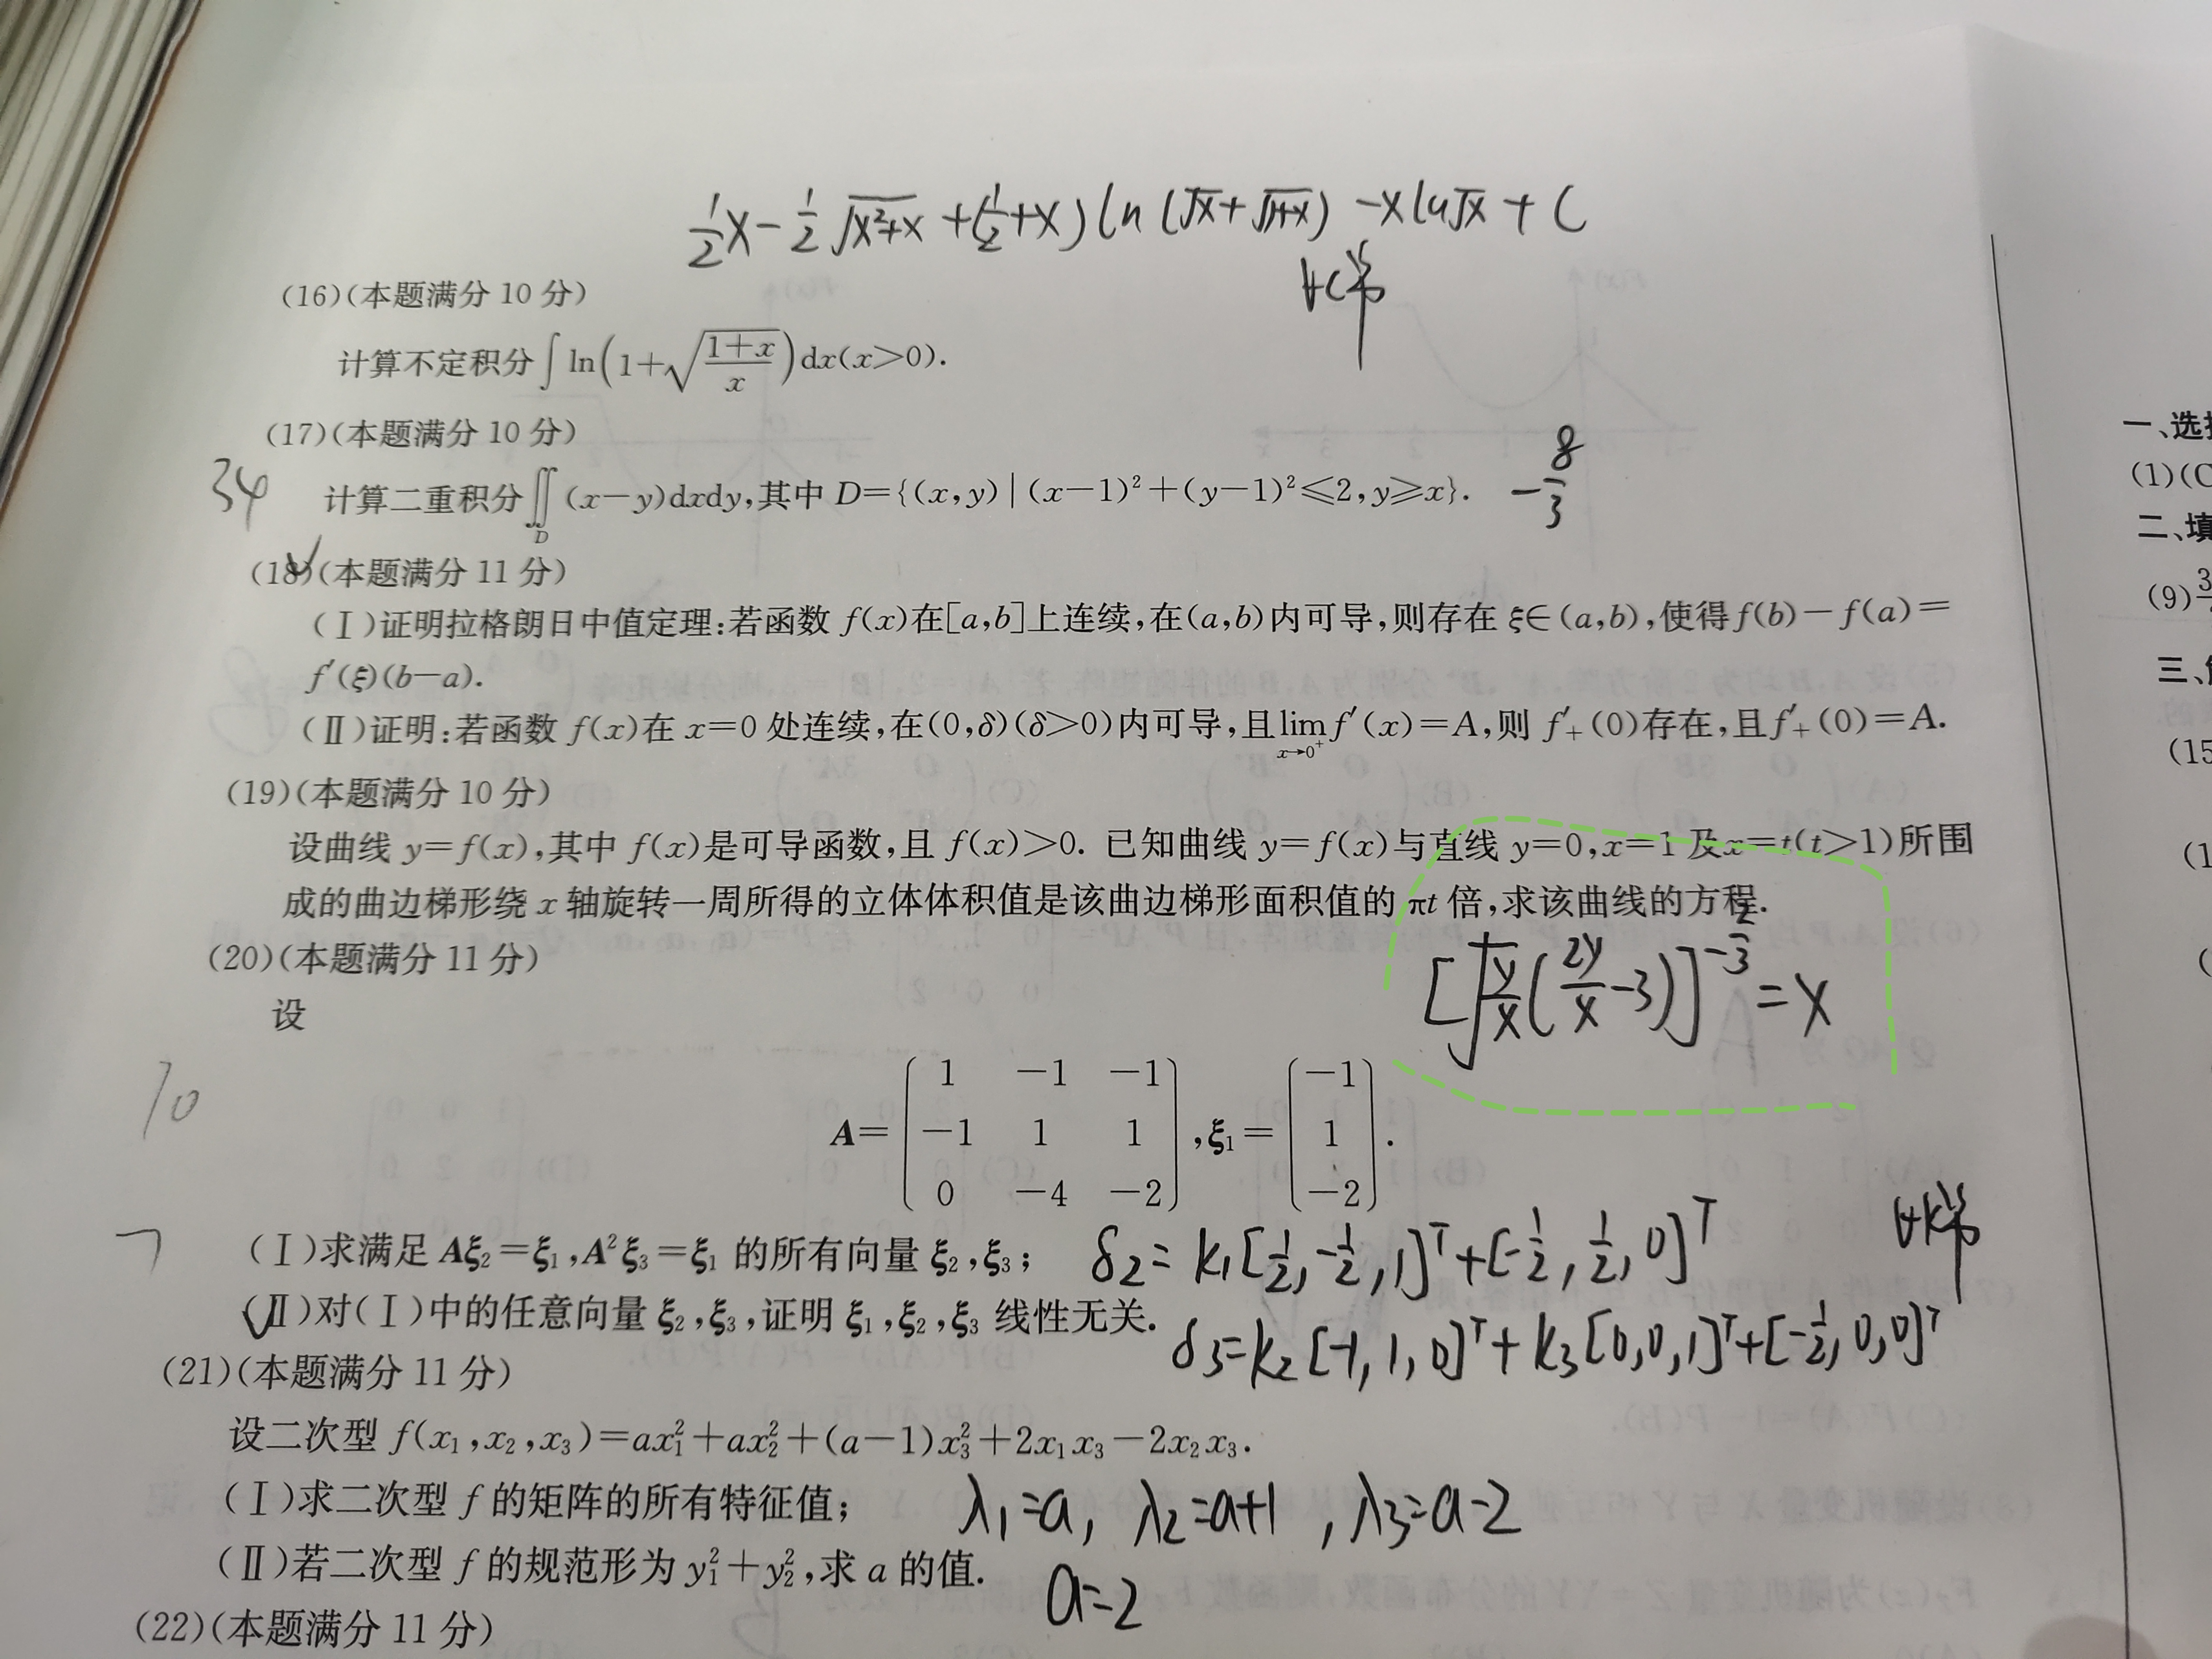 ½x−½√(x²+x) +(½+x)ln(√x+√(1+x)) −xln√x + C
∀C
(16)(本题满分 10 分)
计算不定积分∫ln(1+√((1+x)/x))dx(x>0).
(17)(本题满分 10 分)
34
计算二重积分∬_D(x−y)dxdy,其中 D={(x,y)|(x−1)²+(y−1)²≤2,y≥x}. −8/3
一、选
(1)(C
二、填
(9)3
(18)(本题满分 11 分)
(Ⅰ)证明拉格朗日中值定理:若函数 f(x)在[a,b]上连续,在(a,b)内可导,则存在 ξ∈(a,b),使得f(b)−f(a)=
f′(ξ)(b−a).
三、
(Ⅱ)证明:若函数 f(x)在 x=0 处连续,在(0,δ)(δ>0)内可导,且lim_{x→0⁺}f′(x)=A,则 f′₊(0)存在,且f′₊(0)=A.
(15
(19)(本题满分 10 分)
设曲线 y=f(x),其中 f(x)是可导函数,且 f(x)>0. 已知曲线 y=f(x)与直线 y=0,x=1 及x=t(t>1)所围
(1
成的曲边梯形绕 x 轴旋转一周所得的立体体积值是该曲边梯形面积值的 πt 倍,求该曲线的方程.
[√(y/x)(2y/x−3)]^(−2/3)=x
(20)(本题满分 11 分)
设
10
A=(1 −1 −1
−1 1 1
0 −4 −2),ξ₁=(−1
1
−2).
7
(Ⅰ)求满足 Aξ₂=ξ₁,A²ξ₃=ξ₁ 的所有向量 ξ₂,ξ₃; δ2= k₁[½,−½,1]ᵀ+[−½,½,0]ᵀ
∀k
(Ⅱ)对(Ⅰ)中的任意向量 ξ₂,ξ₃,证明 ξ₁,ξ₂,ξ₃ 线性无关.
δ3=k₂[−1,1,0]ᵀ+k₃[0,0,1]ᵀ+[−½,0,0]ᵀ
(21)(本题满分 11 分)
设二次型 f(x₁,x₂,x₃)=ax₁²+ax₂²+(a−1)x₃²+2x₁x₃−2x₂x₃.
(Ⅰ)求二次型 f 的矩阵的所有特征值; λ₁=a, λ₂=a+1, λ₃=a−2
(Ⅱ)若二次型 f 的规范形为 y₁²+y₂²,求 a 的值. a=2
(22)(本题满分 11 分)